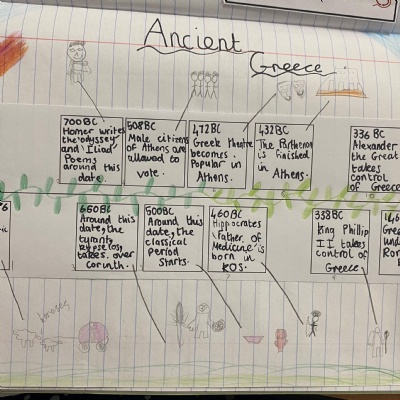 Ancient
Greece
700 BC
Homer writes
the 'odyssey'
and 'Iliad'
Poems
around this
date
508BC
Male citizens
of Athens are
allowed to
vote.
472BC
Greek theatre
becomes
Popular in
Athens.
432BC
The Parthenon
is finished
in Athens.
336 BC
Alexander
the Great
takes
control
of Greece
650BC
Around this
date, the
tyrant,
kypselos,
takes over
corinth.
500BC
Around this
date, the
classical
Period
Starts.
460BC
Hippocrates
'Father of
Medicine' is
born in
KOS.
338BC
King Phillip
II takes
control of
Greece
horses